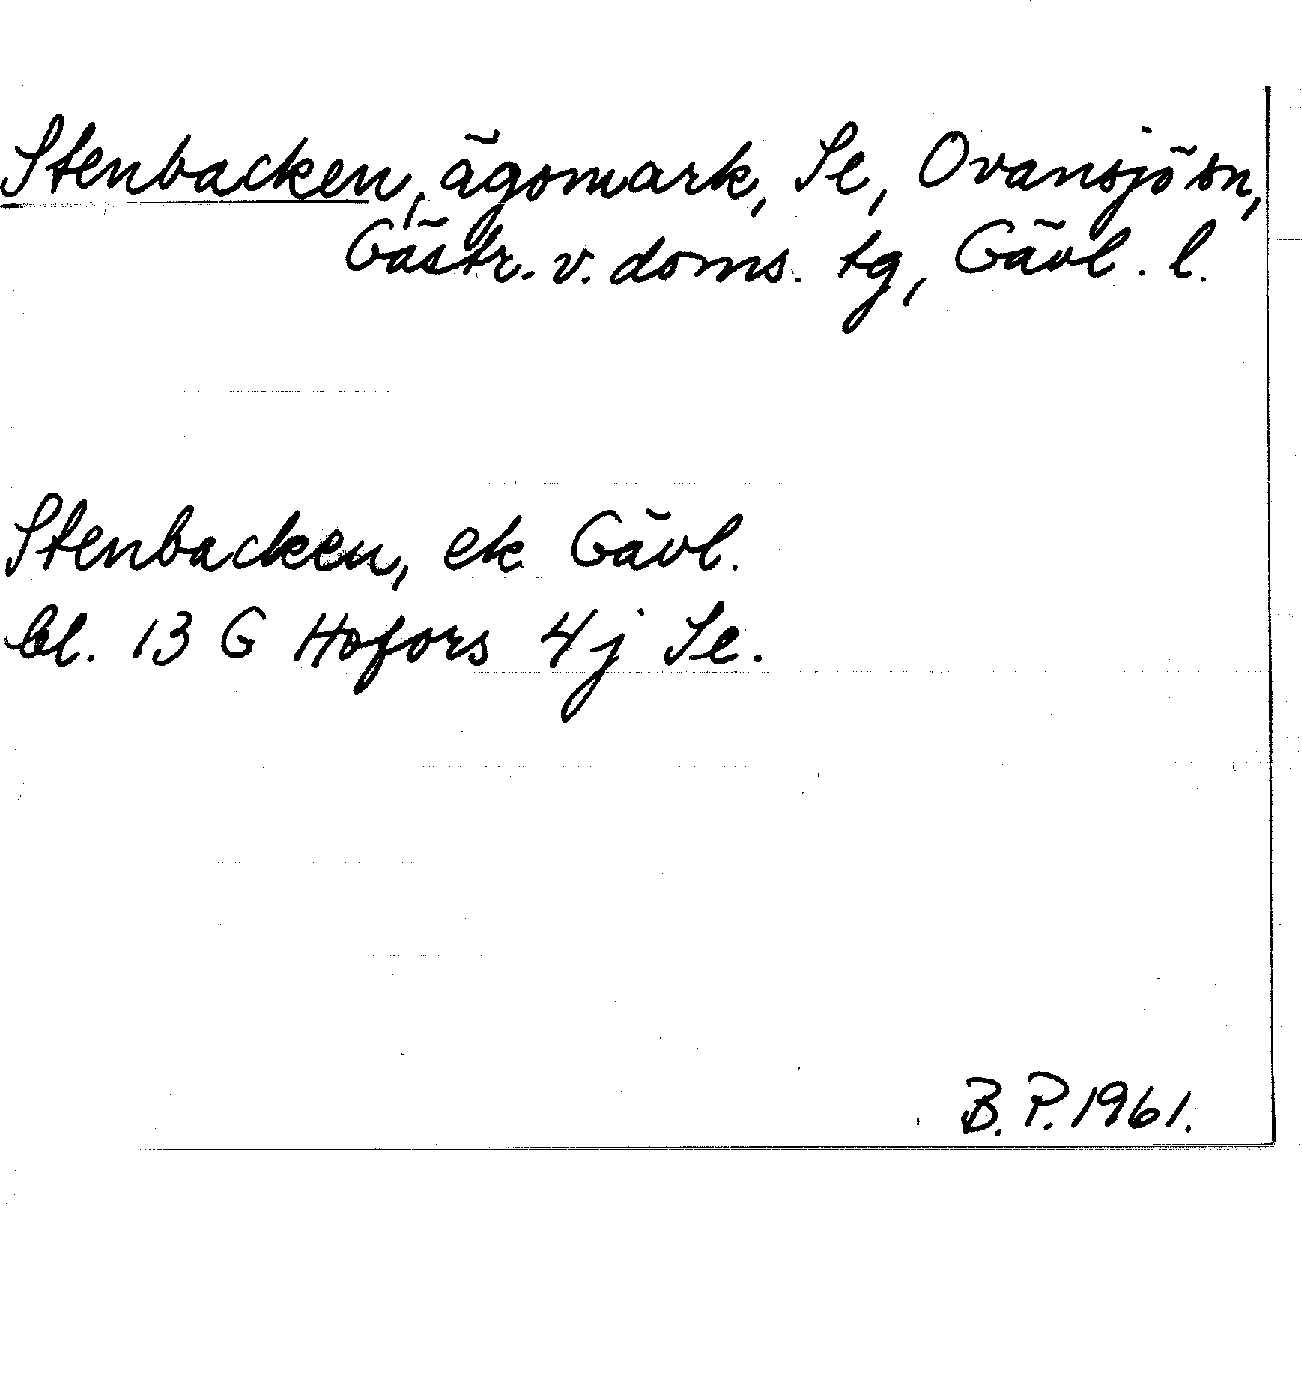 Stenbacken, ägomark, Se, Ovansjö sn,
Gästr. v. doms. tg, Gävl. l.
Stenbacken, ek Gävl.
bl. 13 G Hofors 4j Se.
B. P. 1961.